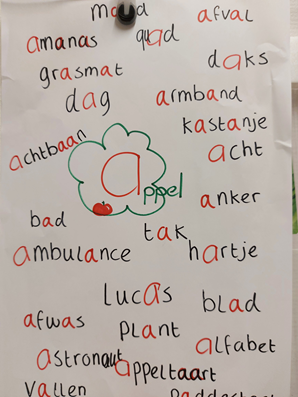 maad
afval
quad
amanas
daks
grasmat
dag
armband
kastanje
achtbaan
acht
appel
anker
bad
tak
ambulance
hartje
lucas
blad
afwas
plant
alfabet
astronaut
appeltaart
vallen